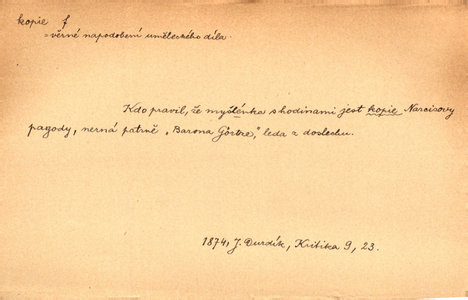 kopie f
= věrné napodobení uměleckého díla.
Kdo pravil, že myšlénka s hodinami jest kopie Narcisovy
pagody, nezná patrně „Barona Görtze“, leda z doslechu.
1874, J. Durdík, Kritika 9, 23.